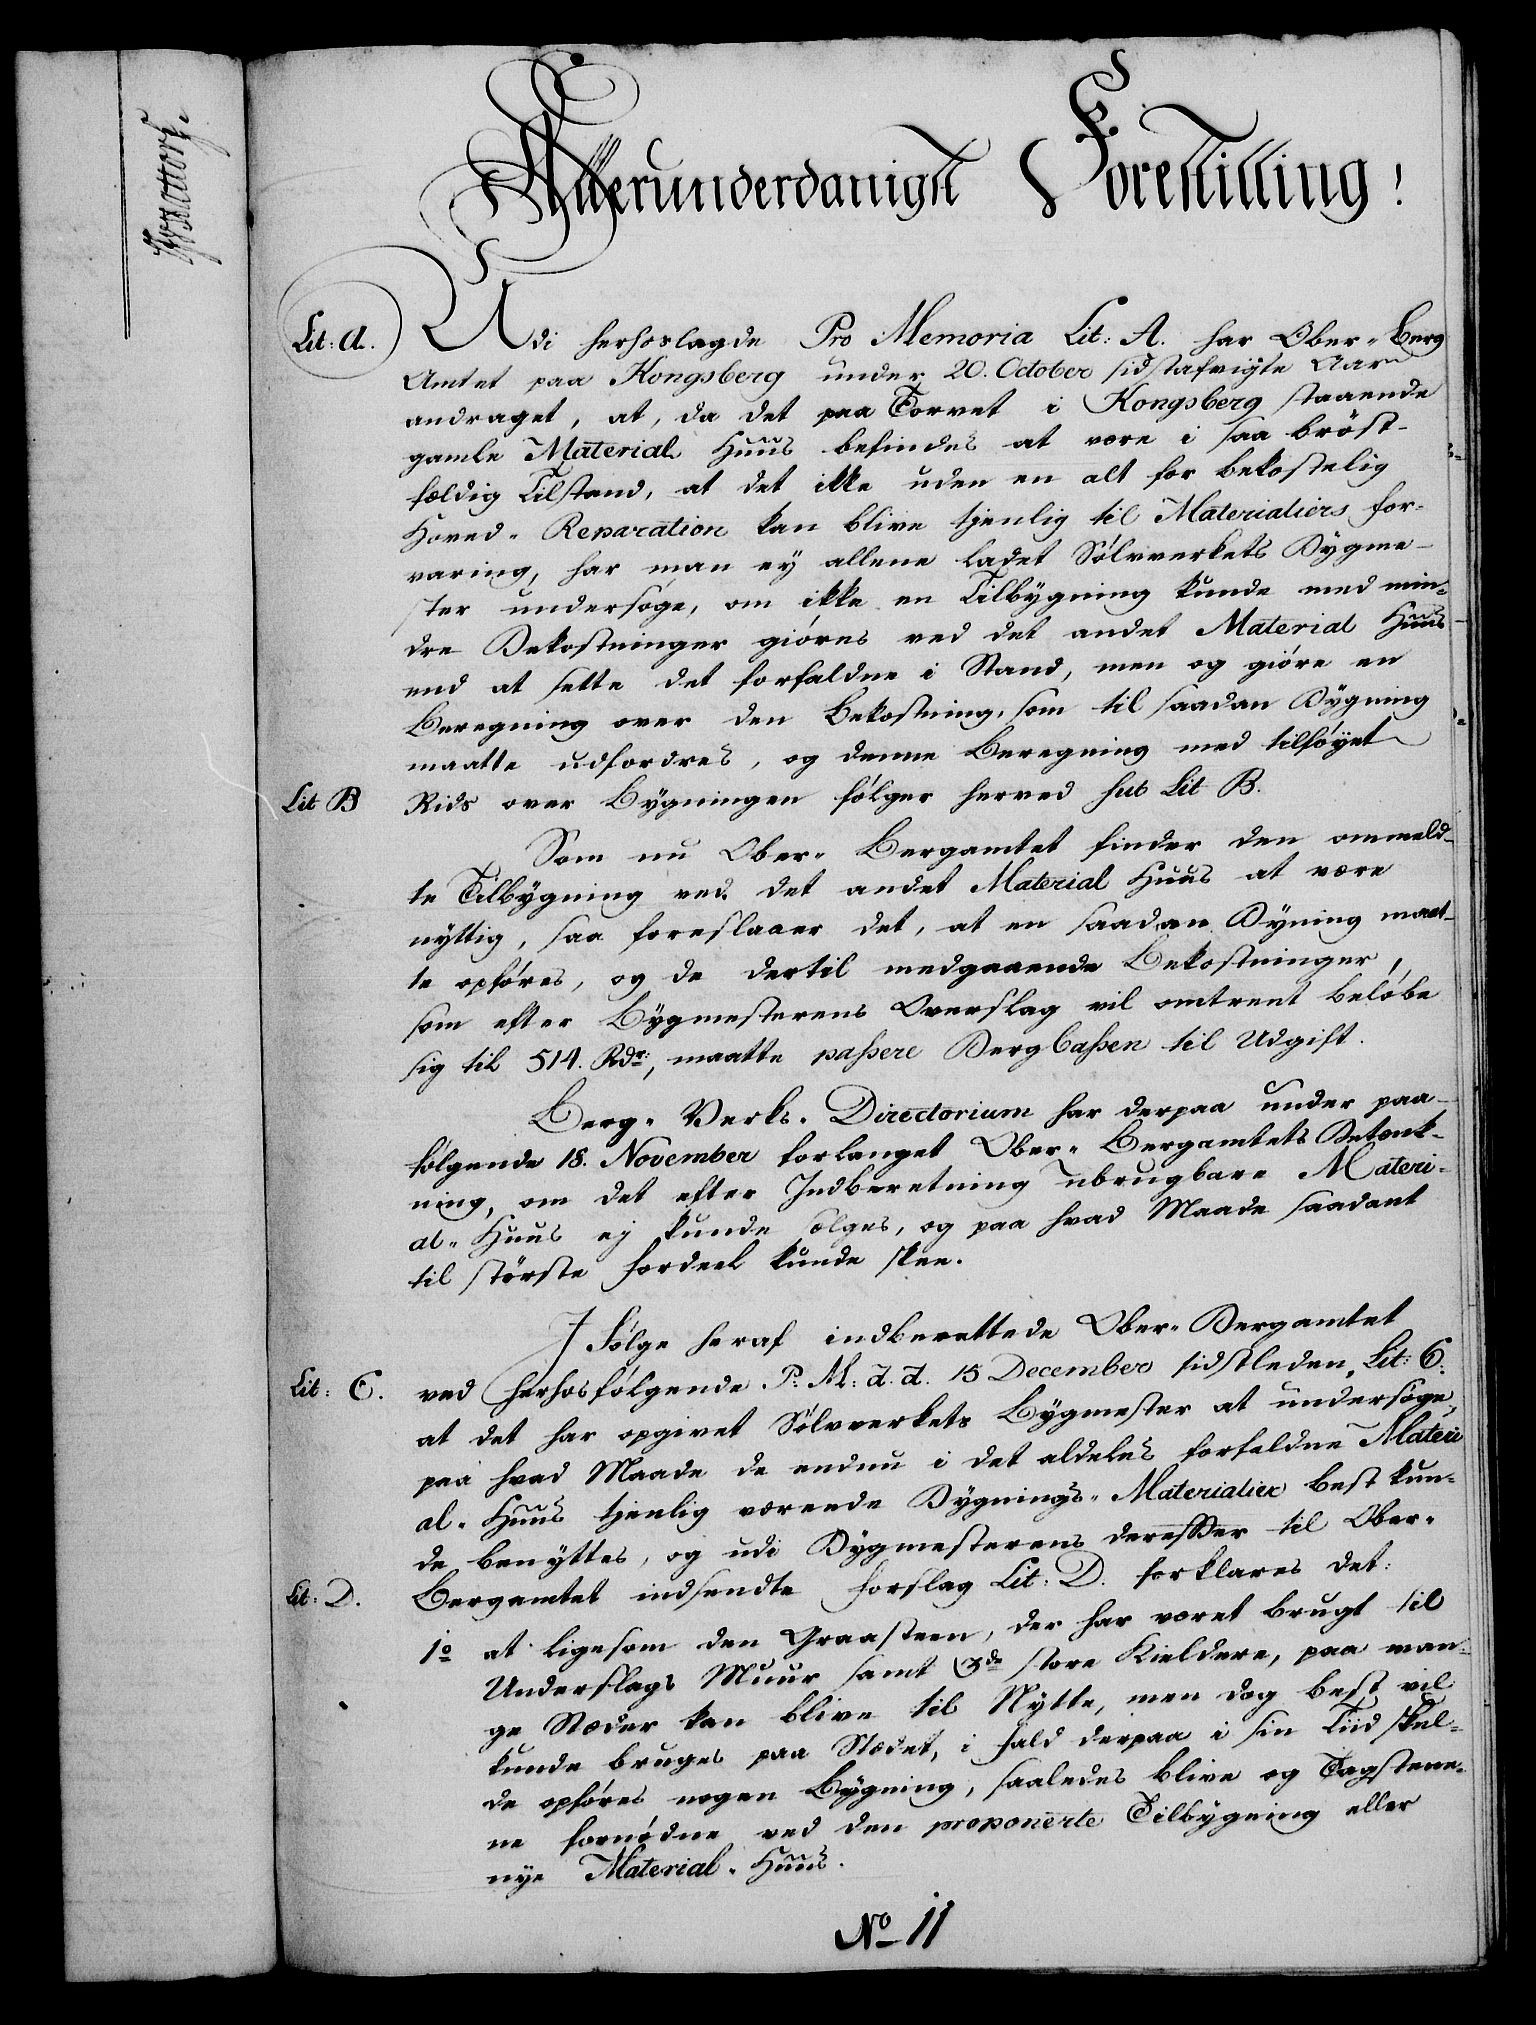 Allerunderdanigst Forestilling!
Lit: A. Udi herhoslagde Pro Memoria Lit: A. har Ober-Berg
Amtet paa Kongsberg under 20. October sidstafvigte Aar
andraget, at, da det paa Torvet i Kongsberg staaende
gamle Material Huus befindes at være i saa bröst-
fældig Tilstand, at det ikke uden en alt for bekostelig
Hoved-Reparation kan blive tjenlig til Materialiers for-
varing, har man ey allene ladet Sölvverkets Bygme-
ster undersöge, om ikke en Tilbygning kunde med min-
dre Bekostninger giöres ved det andet Material Huus
end at sette det forfaldne i Stand, men og giöre en
Beregning over den Bekostning, som til saadan Bygning
maatte udfordres, og denne Beregning med tilföyet
Lit B Rids over Bygningen fölger herved sub Lit B.
Som nu Ober-Bergamtet finder den ommeld-
te Tilbygning ved det andet Material Huus at være
nyttig, saa foreslaaer det, at en saadan Byning maat-
te opföres, og de dertil medgaaende Bekostninger,
som efter Bygmesterens Overslag vil omtrent belöbe
sig til 514. Rdr:, maatte passere BergCassen til Udgift.
Berg-Verks-Directorium har derpaa under paa-
fölgende 18. November forlanget Ober-Bergamtets Betænk-
ning, om det efter Indberetning ubrugbare Materi-
al-Huus ej kunde sælges, og paa hvad Maade saadant
til störste Fordeel kunde skee.
I Fölge heraf indberettede Ober-Bergamtet
Lit: C. ved herhosfölgende P: M: d. d. 15 December sidstleden, Lit: C.
at det har opgivet Sölvverkets Bygmester at undersöge,
paa hvad Maade de endnu i det aldeles forfaldne Materi
al-Huus tjenlig værende Bygnings-Materialier best kun-
de benyttes, og udi Bygmesterens derefter til Ober-
Lit: D. Bergamtet indsendte Forslag Lit: D. forklares det:
1o at ligesom den Graasteen, der har været brugt til
Underslags Muur samt 3de store Kieldere, paa man-
ge Stæder kan blive til Nytte, men dog best vil
kunde bruges paa Stædet, i fald derpaa i sin Tiid skul-
de opföres nogen Bygning, saaledes blive og Tagstene-
ne fornödne ved den proponerte Tilbygning eller
nye Material-Huus.
No 11